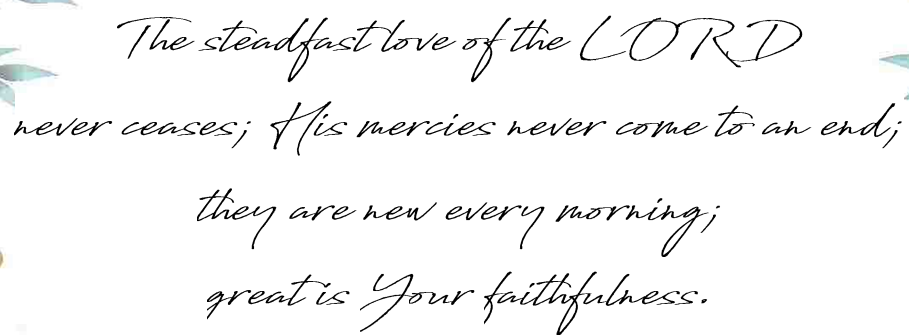 The steadfast love of the LORD
never ceases; His mercies never come to an end;
they are new every morning;
great is Your faithfulness.